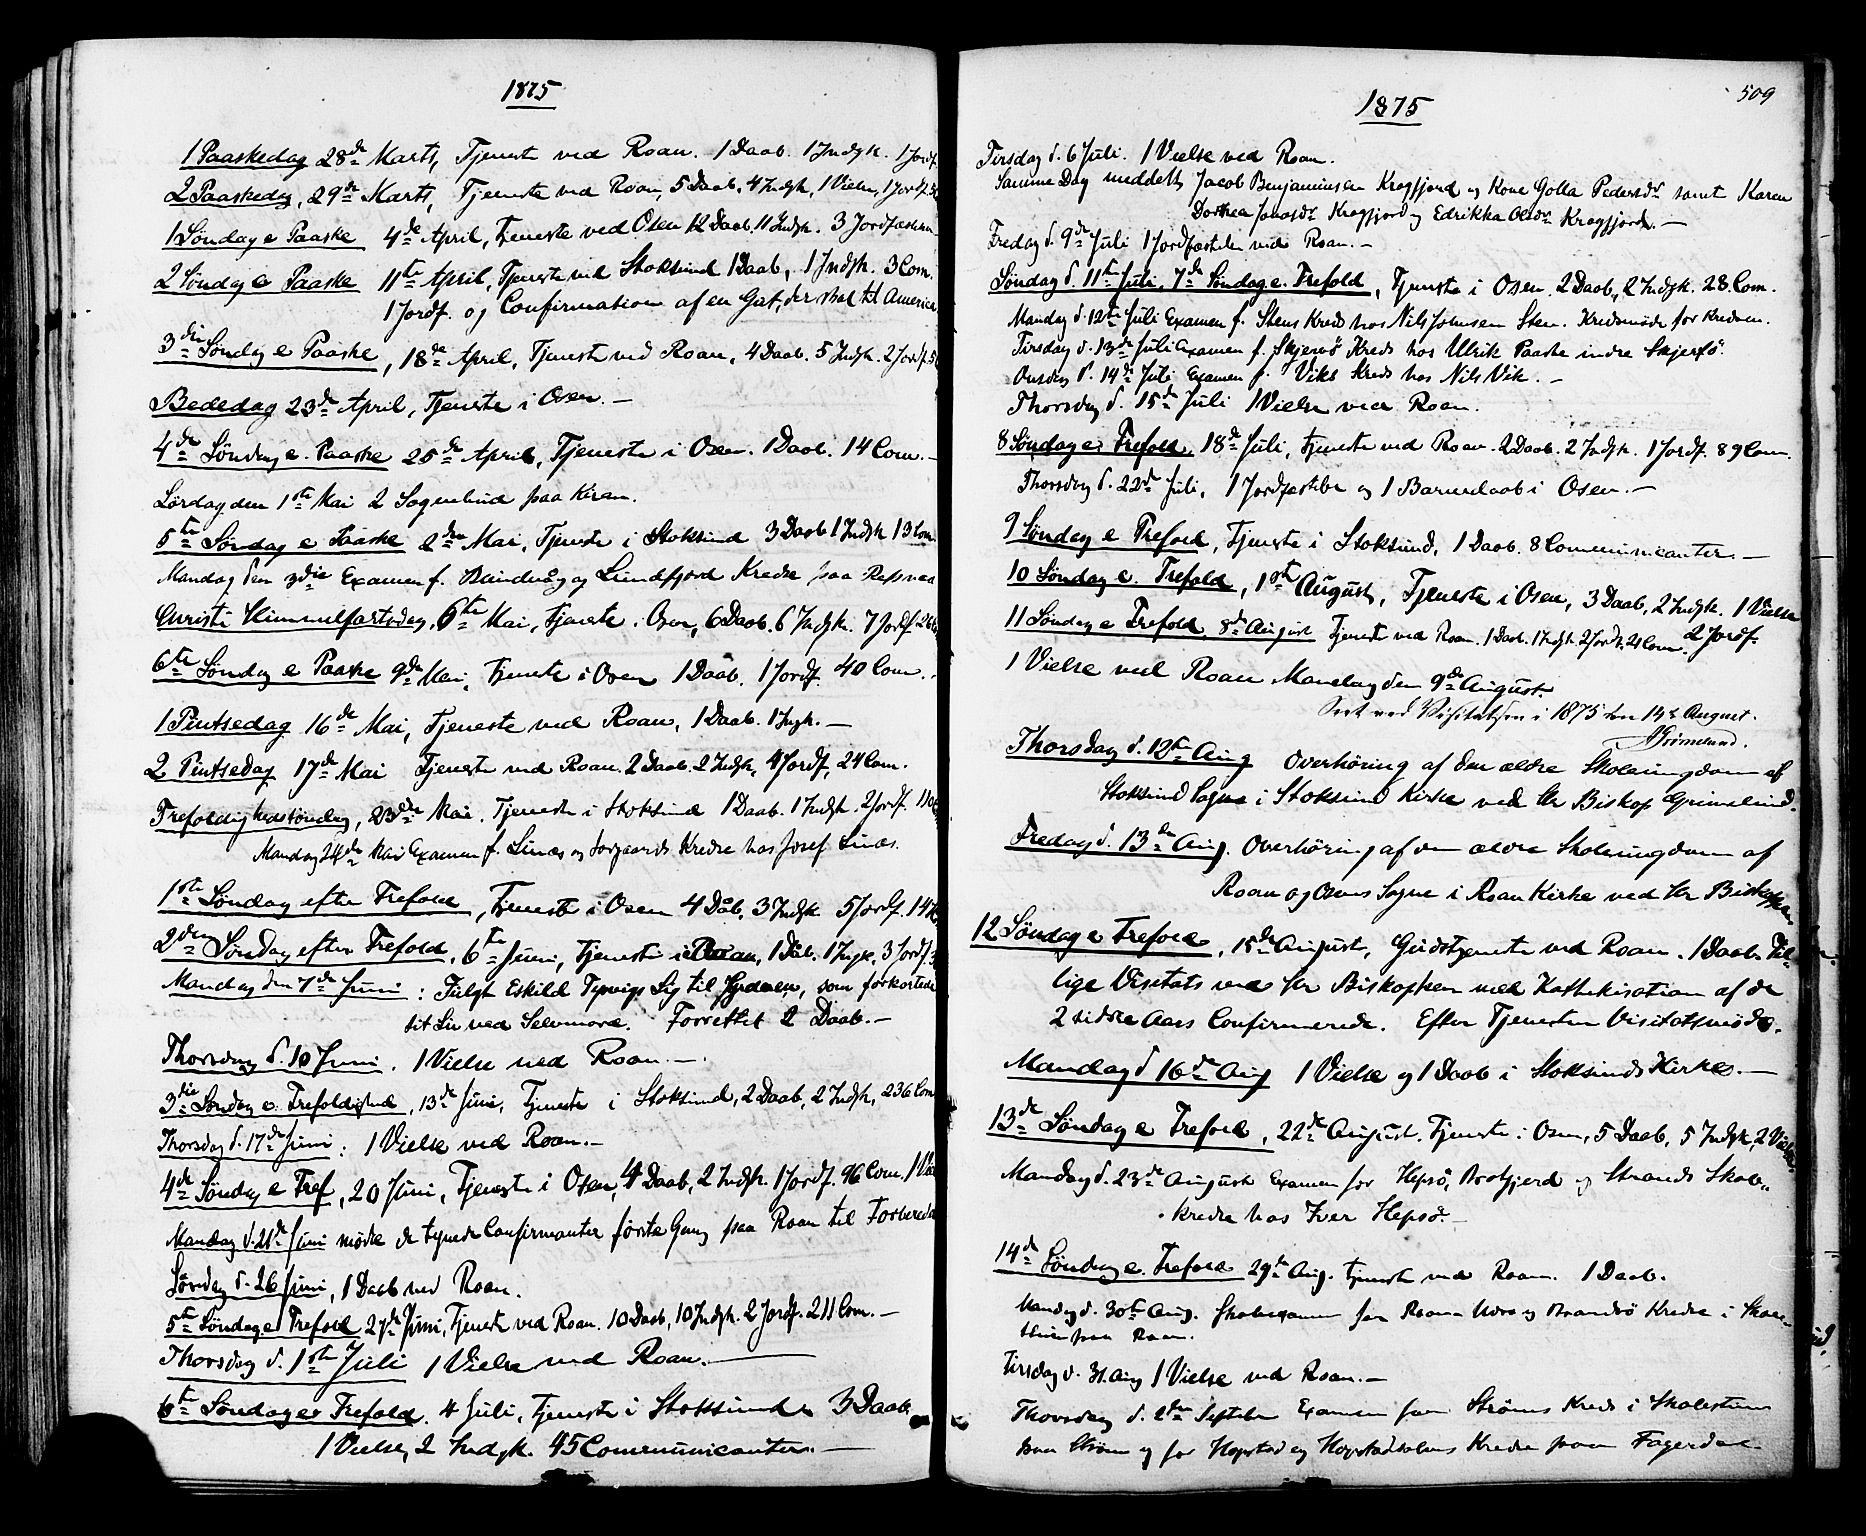 1875
1 Paaskedag 28de Marts, Tjeneste ved Roan. 1 Daab. 1 Indgk. 1 Jordf.
2 Paaskedag, 29de Marts, Tjeneste ved Roan, 5 Daab, 4 Indgk, 1 Vielse, 1 Jordf.
1 Søndag e Paaske 4de April, Tjeneste ved Osen 12 Daab. 11 Indgk. 3 Jordfæstelser
2 Søndag e Paaske 11te April, Tjeneste ved Stoksund 1 Daab, 1 Indgk. 3 Com.
1 Jordf. og Confirmation af en Gut, der skal til America
3die Søndag e Paaske, 18de April, Tjeneste ved Roan, 4 Daab. 5 Indgk. 2 Jordf.
Bededag 23de April, Tjeneste i Osen. —
4de Søndag e. Paaske 25de April, Tjeneste i Osen. 1 Daab. 14 Com. —
Lørdag den 1ste Mai 2 Sognebud paa Kiran.
5te Søndag e Paaske 2den Mai, Tjeneste i Stoksund 3 Daab 1 Indgk 13 Com
Mandag den 3die Examen f. og Lindefjord Kredse paa Refsnes
Christi Himmelfartsdag, 6te Mai, Tjeneste i Osen, 6 Daab. 6 Indgk. 7 Jordf.
6te Søndag e Paaske 9de Mai, Tjeneste i Osen 1 Daab. 1 Jordf. 40 Com.
1 Pintsedag 16de Mai, Tjeneste ved Roan, 1 Daab. 1 Ingk. —
2 Pintsedag 17de Mai Tjeneste ved Roan, 2 Daab, 2 Indgk, 4 Jordf, 24 Com.
Trefoldighedssøndag, 23de Mai. Tjeneste i Stoksund 1 Daab. 1 Indgk. 2 Jordf.
Mandag 24de Mai Examen f. Linæs og Sørgaards Kredse hos Josef Linæs.
1ste Søndag efter Trefold, Tjeneste i Osen 4 Dåb, 3 Indgk 5 Jordf.
2den Søndag efter Trefold, 6te Juni, Tjeneste i Roan, 1 Dåb. 1 Ingk, 3 Jordf.
Mandag den 7de Juni: Fulgt Eskild Terviqs Lig til Jorden, som forkortede
sit Liv ved Selvmord. Forrettet 2 Daab. —
Thorsdag d. 10 Juni. 1 Vielse ved Roan. —
3die Søndag e. Trefoldighed, 13de Juni, Tjeneste i Stoksund, 2 Daab, 2 Indgk, 236 Com
Thorsdag d. 17de Juni: 1 Vielse ved Roan. —
4de Søndag e Tref, 20 Juni, Tjeneste i Osen, 4 Daab, 2 Indgk. 1 Jordf. 96 Com. 1
Mandag d. 21de Juni mødte de Confirmanter første Gang paa Roan til
Søndag d. 26 Juni, 1 Daab ved Roan.
5te Søndag e Trefold, 27de Juni, Tjeneste ved Roan. 10 Daab, 10 Indgk. 2 Jordf. 211 Com. —
Thorsdag d. 1ste Juli 1 Vielse ved Roan. —
6te Søndag e Trefold. 4 Juli, Tjeneste i Stoksund 3 Daab,
1 Vielse, 2 Indgk. 45 Communicanter. —
509
1875
Tirsdag d. 6 Juli. 1 Vielse ved Roan.
Samme Dag meddelt Jacob Benjaminsen Kragfjord og Kone Golla Pedersdr samt Karen
Dorthea Jonasdr Kragfjord og Edrikka Olsdr Kragfjord. —
Fredag d. 9de Juli 1 Jordfæstelse ved Roan. —
Søndag d. 11te Juli, 7de Søndag e. Trefold, Tjeneste i Osen. 2 Daab, 2 Indgk. 28 Com.
Mandag d. 12te Juli Examen f. Stens Kreds hos Nils Johnsen Sten. Kredsmøde for Kredsen.
Tirsdag d. 13de Juli Examen f. Skjervø Kreds hos Ulrik Paaske indre Skjervø.
Onsdag d. 14de Juli Examen f. Viks Kreds hos Nils Vik. —
Thorsdag d. 15de Juli 1 Vielse ved Roan.
8 Søndag e Trefold, 18de Juli, Tjeneste ved Roan. 2 Daab. 2 Indgk. 1 Jordf. 89 Com.
Thorsdag d. 22de Juli, 1 Jordfæstelse og 1 Barnedaab i Osen. —
9 Søndag e Trefold, Tjeneste i Stoksund, 1 Daab. 8 Communicanter. —
10 Søndag e. Trefold, 1ste August, Tjeneste i Osen, 3 Daab, 2 Indgk. 1 Vielse
2 Jordf.
11 Søndag e Trefold, 8de August Tjeneste ved Roan. 1 Daab. 1 Indgk. 2 Jordf. 21 Com.
1 Vielse ved Roan Mandag den 9de August.
Seet ved Visitatsen i 1875 den 14d August.
Grimelund.
Thorsdag d. 12te Aug Overhøring af den ældre Skoleungdom af
Stoksund Sogn i Stoksund Kirke ved Hr Biskop Grimelund.
Fredag d. 13de Aug. Overhøring af den ældre Skoleungdom af
Roan og Osens Sogne i Roan Kirke ved Hr Biskoppen
12 Søndag e Trefold, 15de August, Gudstjeneste ved Roan. 1 Daab. Til-
lige Visitats ved Hr Biskoppen med Kathekisation af de
2 sidste Aars Confirmerede. Efter Tjenesten Visitatsmøde.
Mandag d 16de Aug 1 Vielse og 1 Daab i Stoksunds Kirke. —
13de Søndag e Trefold, 22de August. Tjeneste i Osen, 5 Daab, 5 Indgk, 2 Vielse.
Mandag d. 23de August Examen for Hepsø, og Strands Skole-
kredse hos Iver Hepsø. —
14de Søndag e. Trefold 29de Aug. Tjeneste ved Roan. 1 Daab.
Mandag d. 30te Aug. Skoleexamen for Roan og Brandsø Kredse i Skole-
stuen paa Roan.
Tirsdag d. 31 Aug 1 Vielse ved Roan. —
Thorsdag d. 2den Septeber Examen for Strøms Kreds i Skolestuen
paa Strøm og for Hopstad og Kredse paa Fagerdal